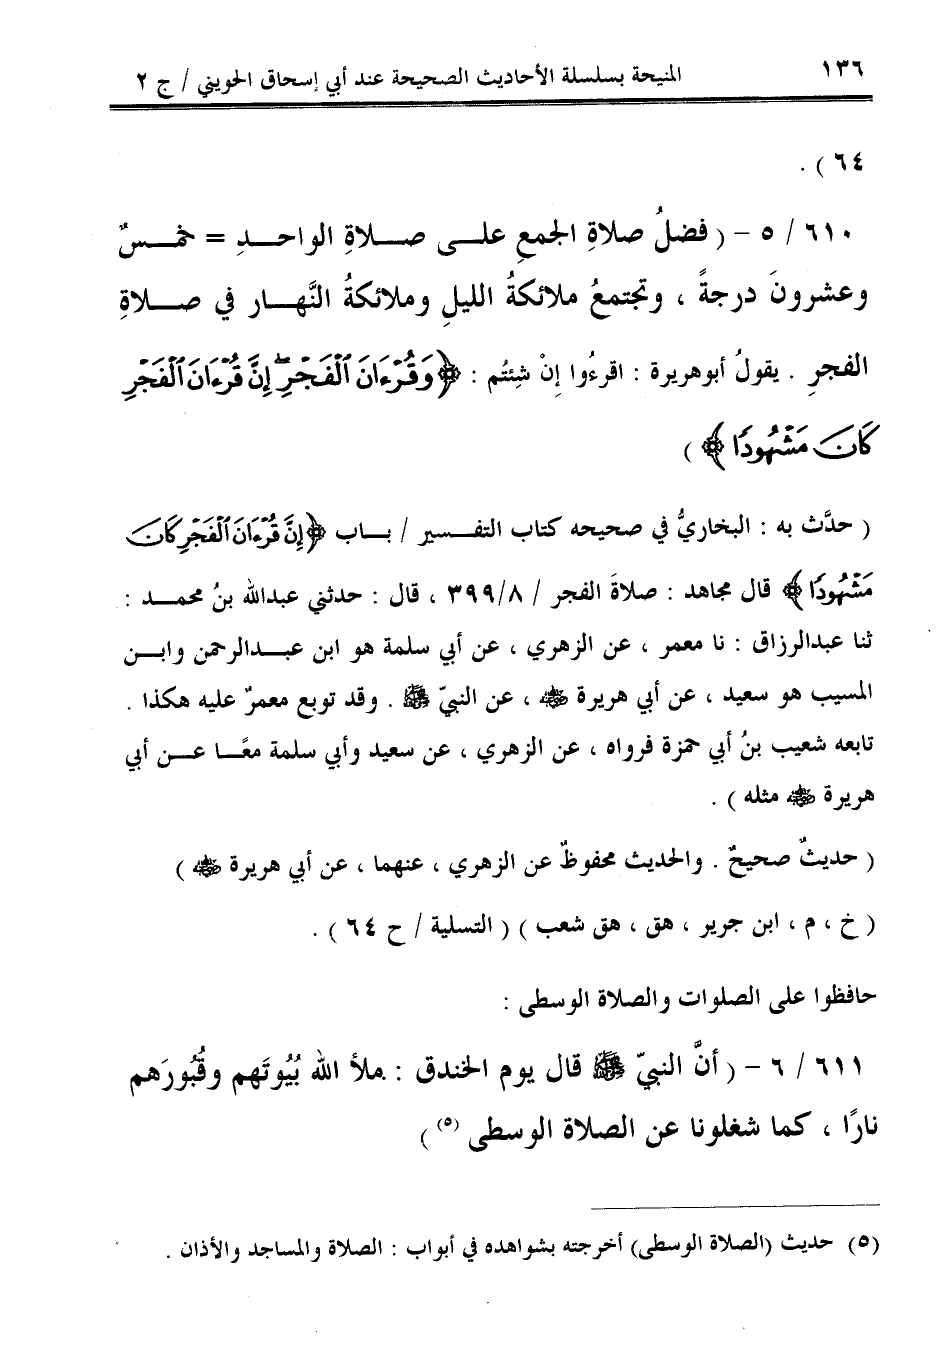 ١٣٦ المنيحة بسلسلة الأحاديث الصحيحة عند أبي إسحاق الحويني / ج ٢
٦٤ ) .
٦١٠ / ٥ - ( فضلُ صلاةِ الجمعِ علـى صـلاةِ الواحـدِ = خمـسٌ
وعشرونَ درجةً ، وتجتمعُ ملائكةُ الليلِ وملائكةُ النَّهـار في صـلاةِ
الفجرِ . يقولُ أبوهريرة : اقرءُوا إنْ شِئتُم : ﴿وَقُرْءَانَ ٱلْفَجْرِ ۖ إِنَّ قُرْءَانَ ٱلْفَجْرِ
كَانَ مَشْهُودًا ﴾ )
( حدَّث به : البخاريُّ في صحيحه كتاب التفـسير / بـاب ﴿إِنَّ قُرْءَانَ ٱلْفَجْرِ كَانَ
مَشْهُودًا ﴾ قال مجاهد : صلاةَ الفجر / ٣٩٩/٨ ، قال : حدثني عبدالله بنُ محمـد :
ثنا عبدالرزاق : نا معمر ، عن الزهري ، عن أبي سلمة هو ابن عبـدالرحمن وابـن
المسيب هو سعيد ، عن أبي هريرة رضي الله عنه ، عن النبيّ ﷺ . وقد توبع معمرٌ عليه هكذا .
تابعه شعيب بنُ أبي حمزة فرواه ، عن الزهري ، عن سعيد وأبي سلمة معًـا عـن أبي
هريرة رضي الله عنه مثله ) .
( حديثٌ صحيحٌ . والحديث محفوظٌ عن الزهري ، عنهما ، عن أبي هريرة رضي الله عنه )
( خ ، م ، ابن جرير ، هق ، هق شعب ) ( التسلية / ح ٦٤ ) .
حافظوا على الصلوات والصلاة الوسطى :
٦١١ / ٦ - ( أنَّ النبيّ ﷺ قال يوم الخندق : ملأ الله بُيُوتَهم وقُبُورَهم
نارًا ، كما شغلونا عن الصلاة الوسطى (٥) )
(٥) حديث (الصلاة الوسطى) أخرجته بشواهده في أبواب : الصلاة والمساجد والأذان .